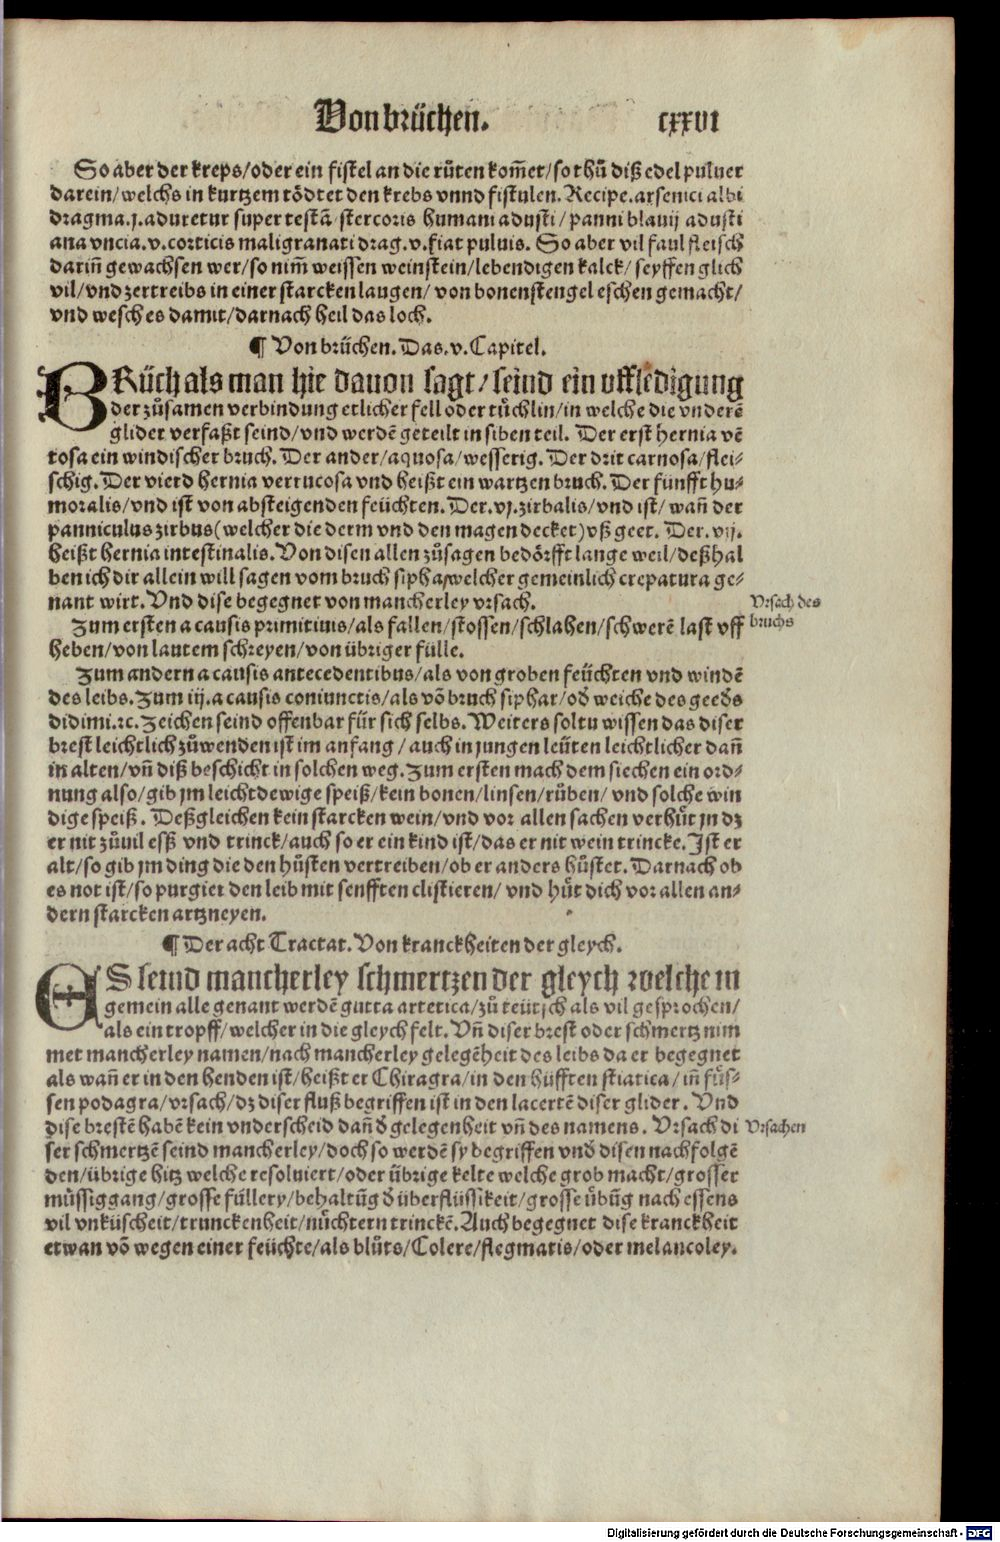 Von brüchen. cxxvi
So aber der kreps/oder ein fistel an die růten kom̃et/so thů diß edel puluer
darein/welchs in kurtzem tödtet den krebs vnnd fistulen. Recipe. arsenici albi
dragma.j. aduretur super testã/stercoris humani adusti/panni blauij adusti
ana vncia.v.corticis maligranati drag.v.fiat puluis. So aber vil faul fleisch
dariñ gewachsen wer/so nim̃ weissen weinstein/lebendigen kalck/seyffen glich
vil/vnd zertreibs in einer starcken laugen/von bonenstengel eschen gemacht/
vnd wesch es damit/darnach heil das loch.
¶ Von brüchen. Das.v.Capitel.
BRüch als man hie dauon sagt/seind ein vffledigung
der zůsamen verbindung etlicher fell oder tüchlin/in welche die vnderẽ
glider verfaßt seind/vnd werdẽ geteilt in siben teil. Der erst hernia vẽ
tosa ein windischer bruch. Der ander/aquosa/wesserig. Der drit carnosa/flei-
schig. Der vierd hernia verrucosa vnd heißt ein wartzen bruch. Der fünfft hu-
moralis/vnd ist von absteigenden feüchten. Der.vj.zirbalis/vnd ist/wañ der
panniculus zirbus(welcher die derm vnd den magen decket)vß geet. Der.vij.
heißt hernia intestinalis. Von disen allen zůsagen bedörfft lange weil/deßhal
ben ich dir allein will sagen vom bruch sipha/welcher gemeinlich crepatura ge-
nant wirt. Vnd dise begegnet von mancherley vrsach.
Vrsach des
bruchs
Zum ersten a causis primitiuis/als fallen/stossen/schlahen/schwerẽ last vff
heben/von lautem schreyen/von übriger fülle.
Zum andern a causis antecedentibus/als von groben feüchten vnd windẽ
des leibs. Zum iij.a causis coniunctis/als võ bruch siphar/od̃ weiche des geeds
didimi.ꝛc. Zeichen seind offenbar für sich selbs. Weiters soltu wissen das diser
brest leichtlich zůwenden ist im anfang/auch in jungen leüten leichtlicher dañ
in alten/vñ diß beschicht in solchen weg. Zum ersten mach dem siechen ein ord-
nung also/gib jm leichtdewige speiß/kein bonen/linsen/růben/vnd solche win
dige speiß. Deßgleichen kein starcken wein/vnd vor allen sachen verhüt jn dz
er nit zůuil esß vnd trinck/auch so er ein kind ist/das er nit wein trincke. Ist er
alt/so gib jm ding die den hůsten vertreiben/ob er anders hůstet. Darnach ob
es not ist/so purgier den leib mit senfften clistieren/vnd hüt dich vor allen an-
dern starcken artzneyen.
¶ Der acht Tractat. Von kranckheiten der gleych.
ES seind mancherley schmertzen der gleych welche in
gemein alle genant werdẽ gutta artetica/zů teütsch als vil gesprochen/
als ein tropff/welcher in die gleych felt. Vñ diser brest oder schmertz nim
met mancherley namen/nach mancherley gelegẽheit des leibs da er begegnet
als wañ er in den henden ist/heißt er Chiragra/in den hüfften stiatica/iñ fůs-
sen podagra/vrsach/dz diser fluß begriffen ist in den lacertẽ diser glider. Vnd
dise brestẽ habẽ kein vnderscheid dañ d̃ gelegenheit vñ des namens. Vrsach di
Vrsachen
ser schmertzẽ seind mancherley/doch so werdẽ sy begriffen vnd̃ disen nachfolgẽ
den/übrige hitz welche resoluiert/oder übrige kelte welche grob macht/grosser
müssiggang/grosse füllery/behaltũg d̃ überflüssikeit/grosse übũg nach essens
vil vnküscheit/trunckenheit/nüchtern trinckẽ. Auch begegnet dise kranckheit
etwan võ wegen einer feüchte/als blůts/Colere/flegmatis/oder melancoley.
Digitalisierung gefördert durch die Deutsche Forschungsgemeinschaft - DFG